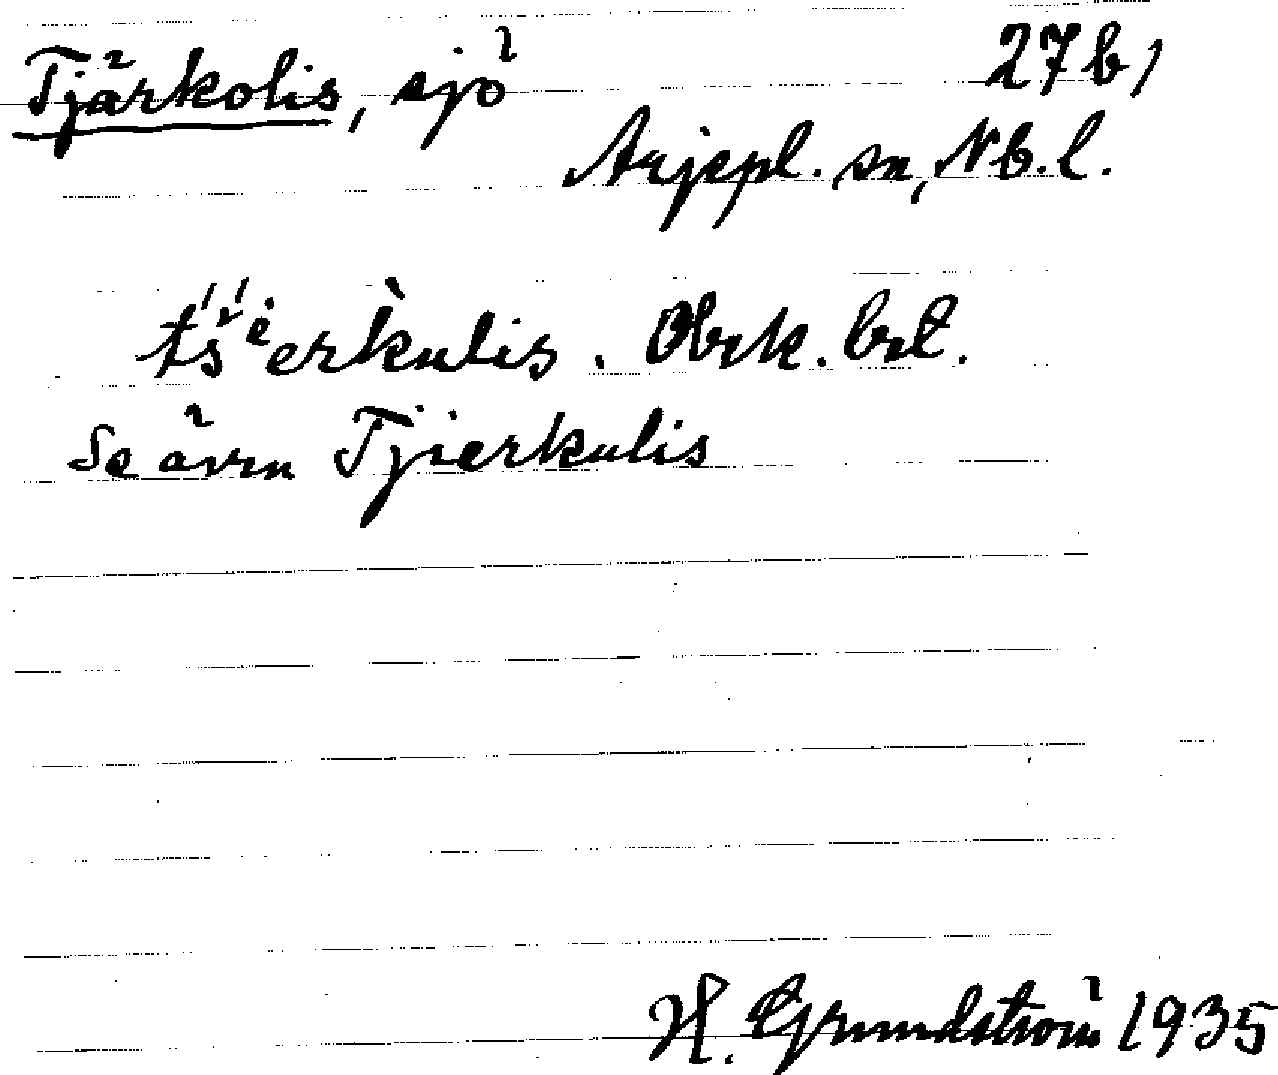 Tjärkolis, sjö 27b,
Arjepl. sn, Nb. l.
Obrk. brl.
Se även Tjierkulis
H. Grundström 1935